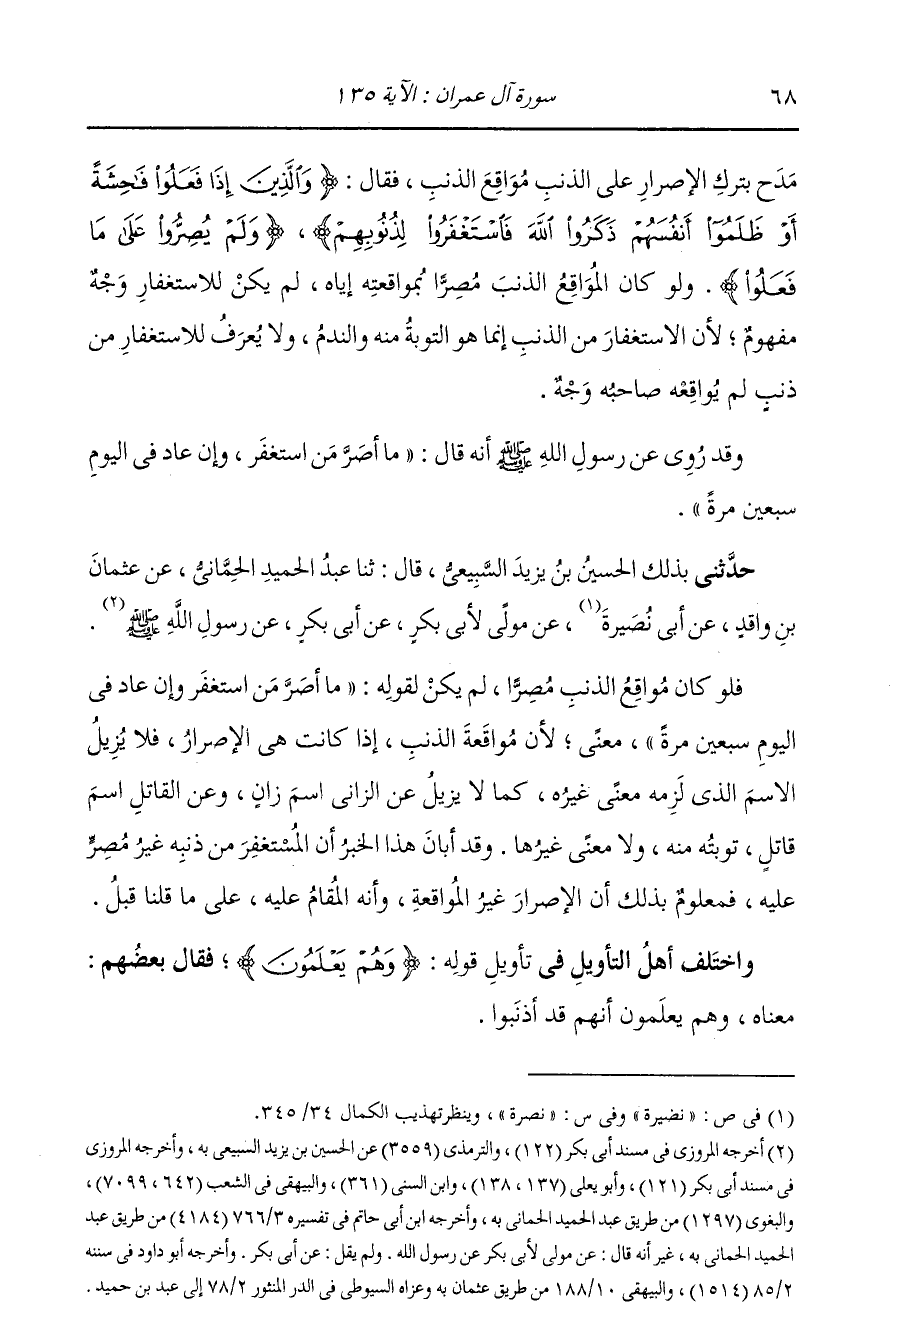 ٦٨ سورة آل عمران : الآية ١٣٥
مَدَح بتركِ الإصرارِ على الذنبِ مُوَاقِعَ الذنبِ ، فقال : ﴿ وَٱلَّذِينَ إِذَا فَعَلُوا۟ فَـٰحِشَةً
أَوْ ظَلَمُوٓا۟ أَنفُسَهُمْ ذَكَرُوا۟ ٱللَّهَ فَٱسْتَغْفَرُوا۟ لِذُنُوبِهِمْ ﴾ ، ﴿ وَلَمْ يُصِرُّوا۟ عَلَىٰ مَا
فَعَلُوا۟ ﴾ . ولو كان المُوَاقِعُ الذنبَ مُصِرًّا بمواقعتِه إياه ، لم يكنْ للاستغفارِ وَجْهٌ
مفهومٌ ؛ لأن الاستغفارَ من الذنبِ إنما هو التوبةُ منه والندمُ ، ولا يُعرَفُ للاستغفارِ من
ذنبٍ لم يُواقِعْه صاحبُه وَجْهٌ .
وقد رُوِى عن رسولِ اللهِ ﷺ أنه قال : « ما أصَرَّ مَن استغفَر ، وإن عاد فى اليومِ
سبعين مرةً » .
حدَّثنى بذلك الحسينُ بنُ يزيدَ السَّبِيعىُّ ، قال : ثنا عبدُ الحميدِ الحِمَّانىُّ ، عن عثمانَ
بنِ واقدٍ ، عن أبى نُصَيرةَ(١) ، عن مولًى لأبى بكرٍ ، عن أبى بكرٍ ، عن رسولِ اللَّهِ ﷺ(٢) .
فلو كان مُواقِعُ الذنبِ مُصِرًّا ، لم يكنْ لقولِه : « ما أصَرَّ مَن استغفَر وإن عاد فى
اليومِ سبعين مرةً » ، معنًى ؛ لأن مُواقَعةَ الذنبِ ، إذا كانت هى الإصرارُ ، فلا يُزِيلُ
الاسمَ الذى لَزِمه معنًى غيرُه ، كما لا يزيلُ عن الزانى اسمَ زانٍ ، وعن القاتلِ اسمَ
قاتلٍ ، توبتُه منه ، ولا معنًى غيرُها . وقد أبانَ هذا الخبرُ أن المُسْتغفِرَ من ذنبِه غيرُ مُصِرٍّ
عليه ، فمعلومٌ بذلك أن الإصرارَ غيرُ المُواقعةِ ، وأنه المُقامُ عليه ، على ما قلنا قبلُ .
واختَلف أهلُ التأويلِ فى تأويلِ قولِه : ﴿ وَهُمْ يَعْلَمُونَ ﴾ ؛ فقال بعضُهم :
معناه ، وهم يعلَمون أنهم قد أذنَبوا .
(١) فى ص : « نضيرة » وفى س : « نصرة » ، وينظرتهذيب الكمال ٣٤/ ٣٤٥.
(٢) أخرجه المروزى فى مسند أبى بكر (١٢٢) ، والترمذى (٣٥٥٩) عن الحسين بن يزيد السبيعي به ، وأخرجه المروزى
فى مسند أبى بكر (١٢١) ، وأبو يعلى (١٣٧ ، ١٣٨) ، وابن السنى (٣٦١) ، والبيهقى فى الشعب (٦٤٢ ، ٧٠٩٩) ،
والبغوى (١٢٩٧) من طريق عبد الحميد الحمانى به ، وأخرجه ابن أبي حاتم فى تفسيره ٧٦٦/٣ (٤١٨٤) من طريق عبد
الحميد الحمانى به ، غير أنه قال : عن مولى لأبى بكر عن رسول الله . ولم يقل : عن أبى بكر . وأخرجه أبو داود فى سننه
٨٥/٢ (١٥١٤) ، والبيهقى ١٨٨/١٠ من طريق عثمان به وعزاه السيوطى فى الدر المنثور ٧٨/٢ إلى عبد بن حميد .